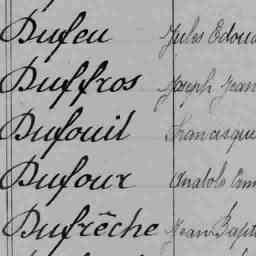 Dufeu Jules Edoua
Duffros Joseph Jean
Dufouil Francisque
Dufour Anatole Em
Dufrêche Jean Bapti